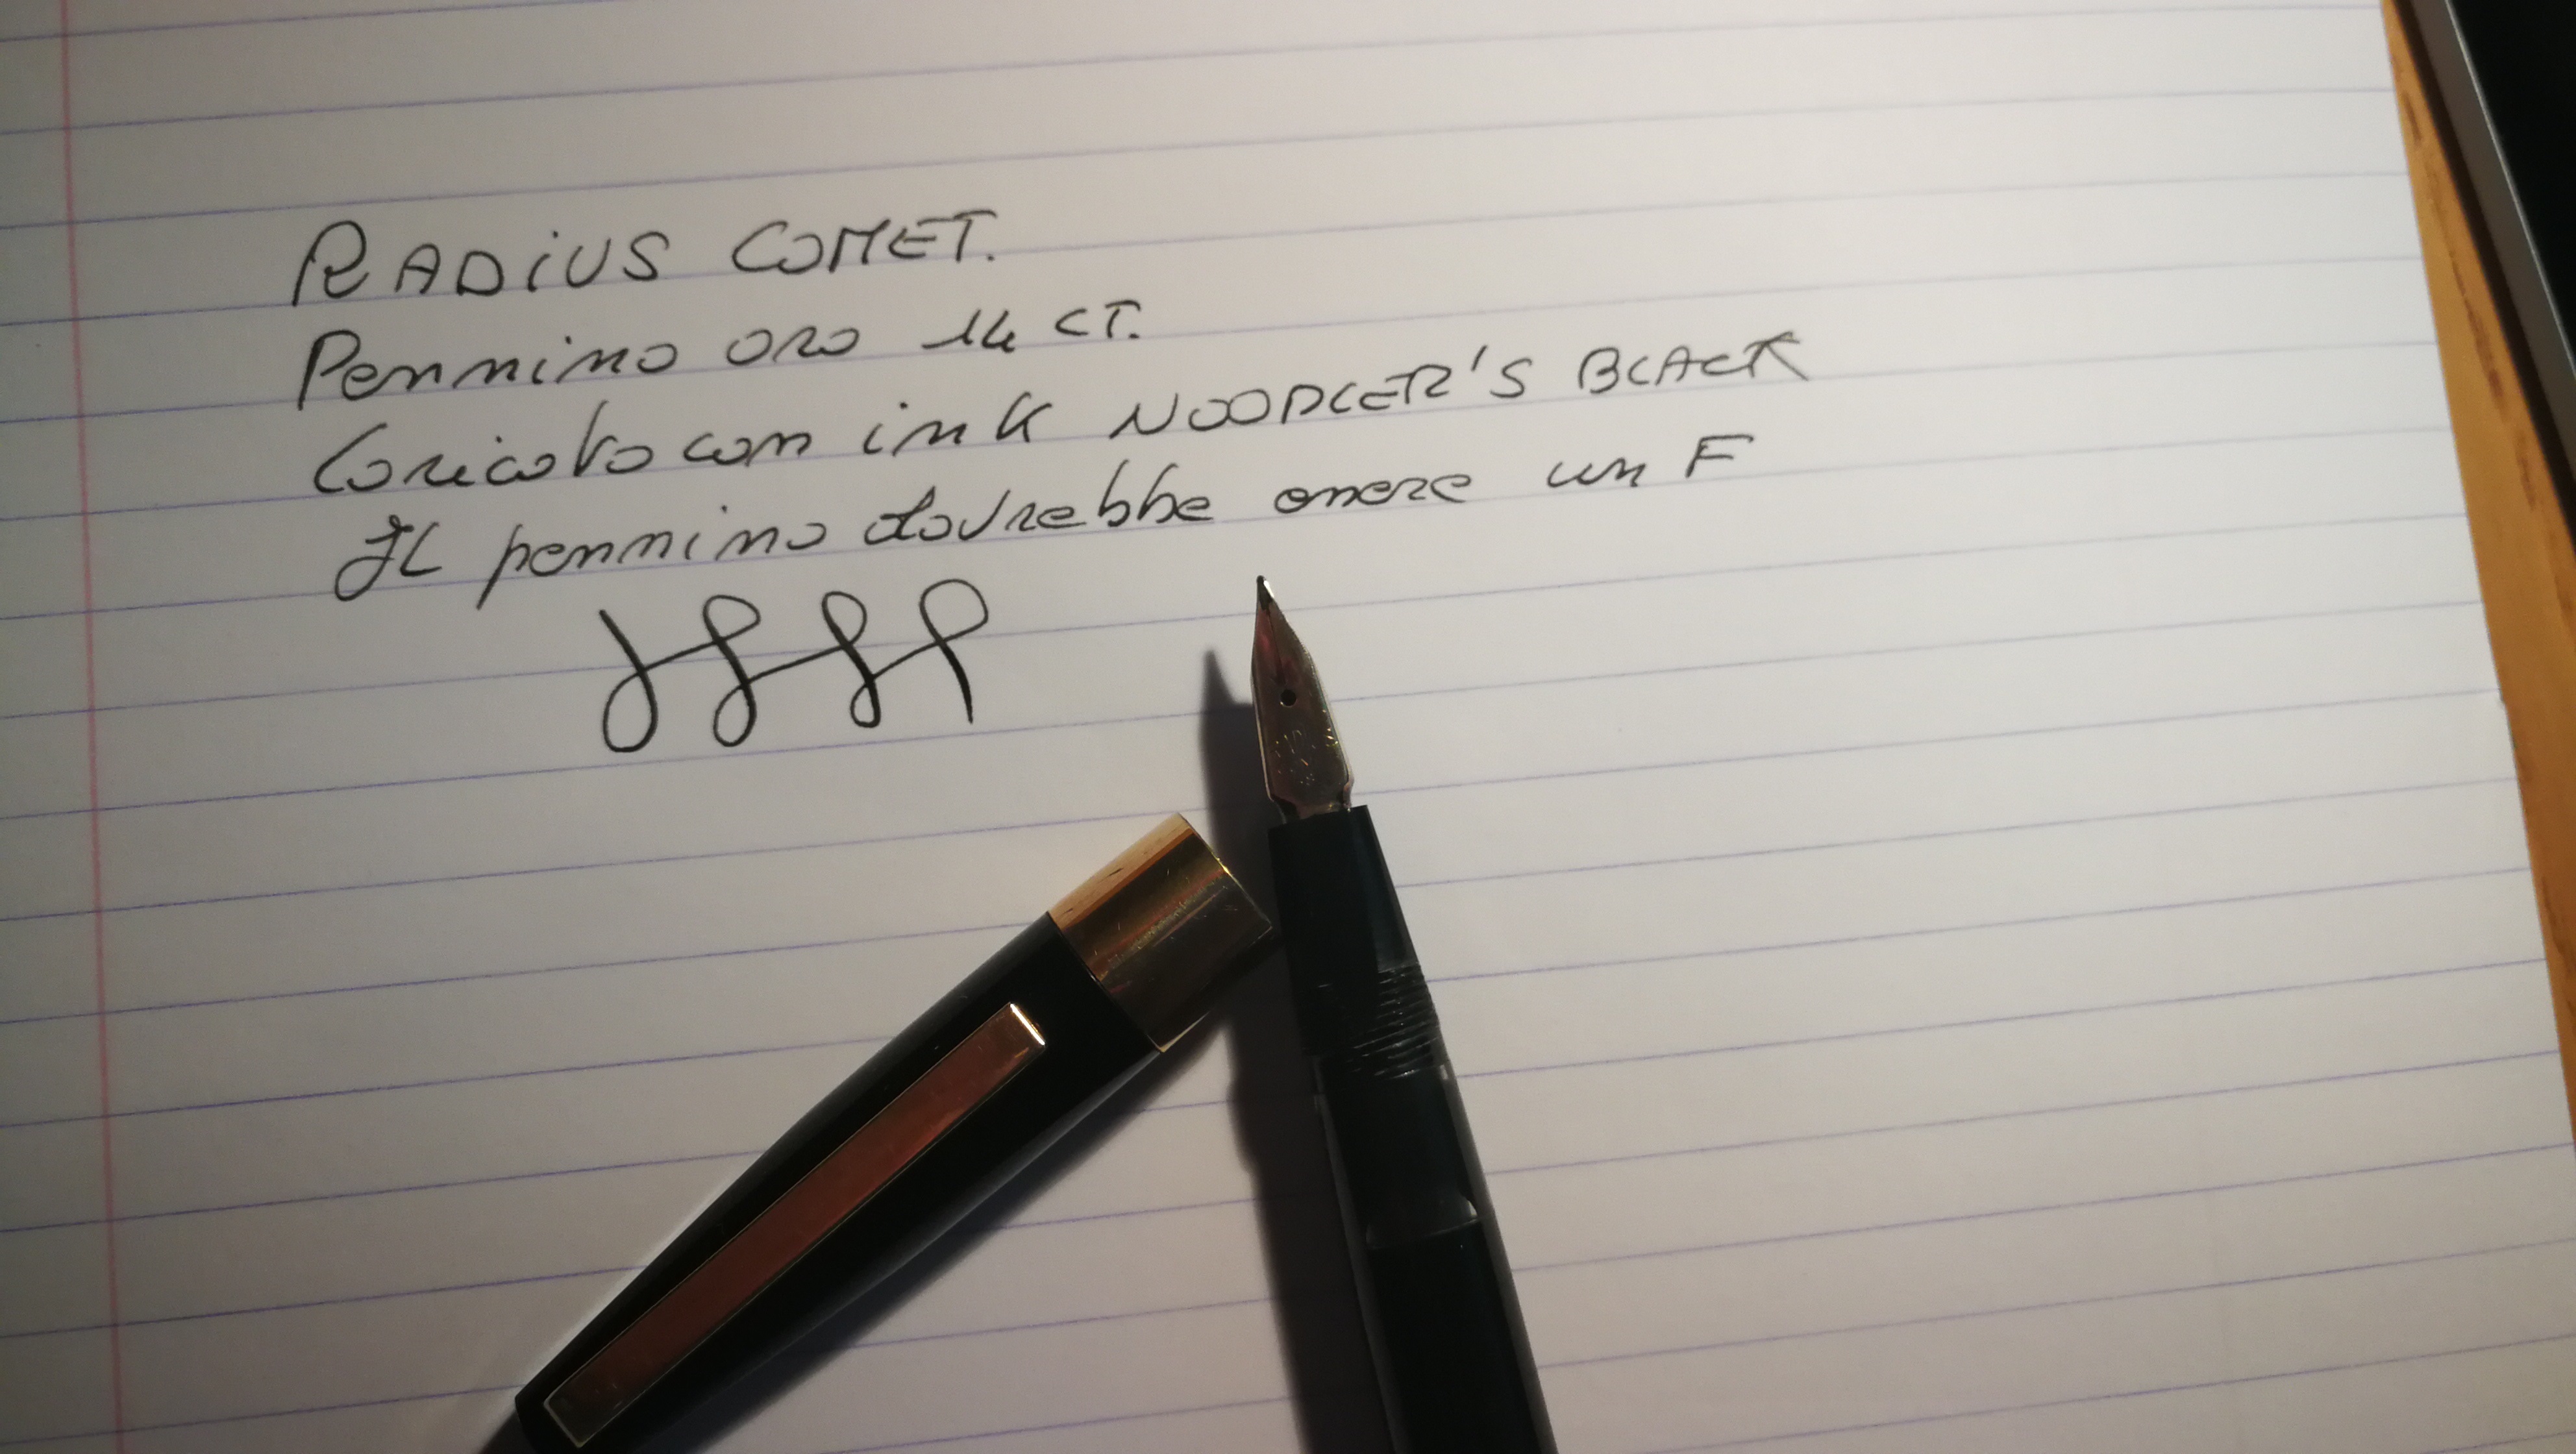 RADiUS COMET.
Pennino oro 14 CT.
Caricato con ink NOODLER'S BLACK
IL pennino dovrebbe essere un F